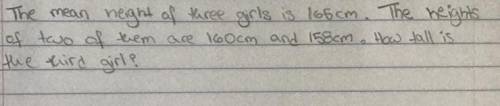 The mean height of three girls is 165cm. The heights
of two of them are 160cm and 158cm. How tall is
the third girl?